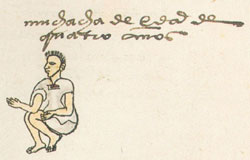 muchacha de edad de
quatro años